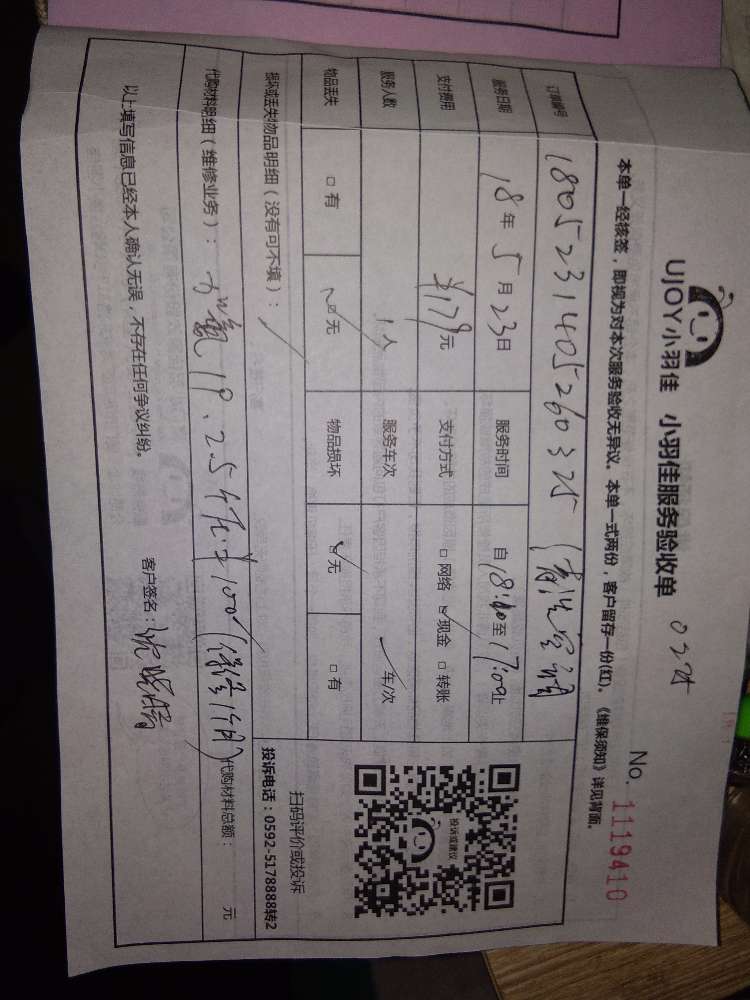 UJOY小羽佳 小羽佳服务验收单
No. 1119410
本单一经核签，即视为对本次服务验收无异议。本单一式两份，客户留存一份(红)。《维保须知》详见背面。
订单编号 1805231405260325
服务日期 18年5月23日 服务时间 自 至17:00止
支付费用 ¥179元 支付方式 □网络 □现金 □转账
服务人数 1人 服务车次 车/次
物品丢失 □有 □无 物品损坏 □无 □有
损坏或丢失物品明细（没有可不填）：
代购材料明细（维修业务）： 代购材料总额： 元
以上填写信息已经本人确认无误，不存在任何争议纠纷。 客户签名：
投诉或建议
扫码评价或投诉
投诉电话：0592-5178888转2